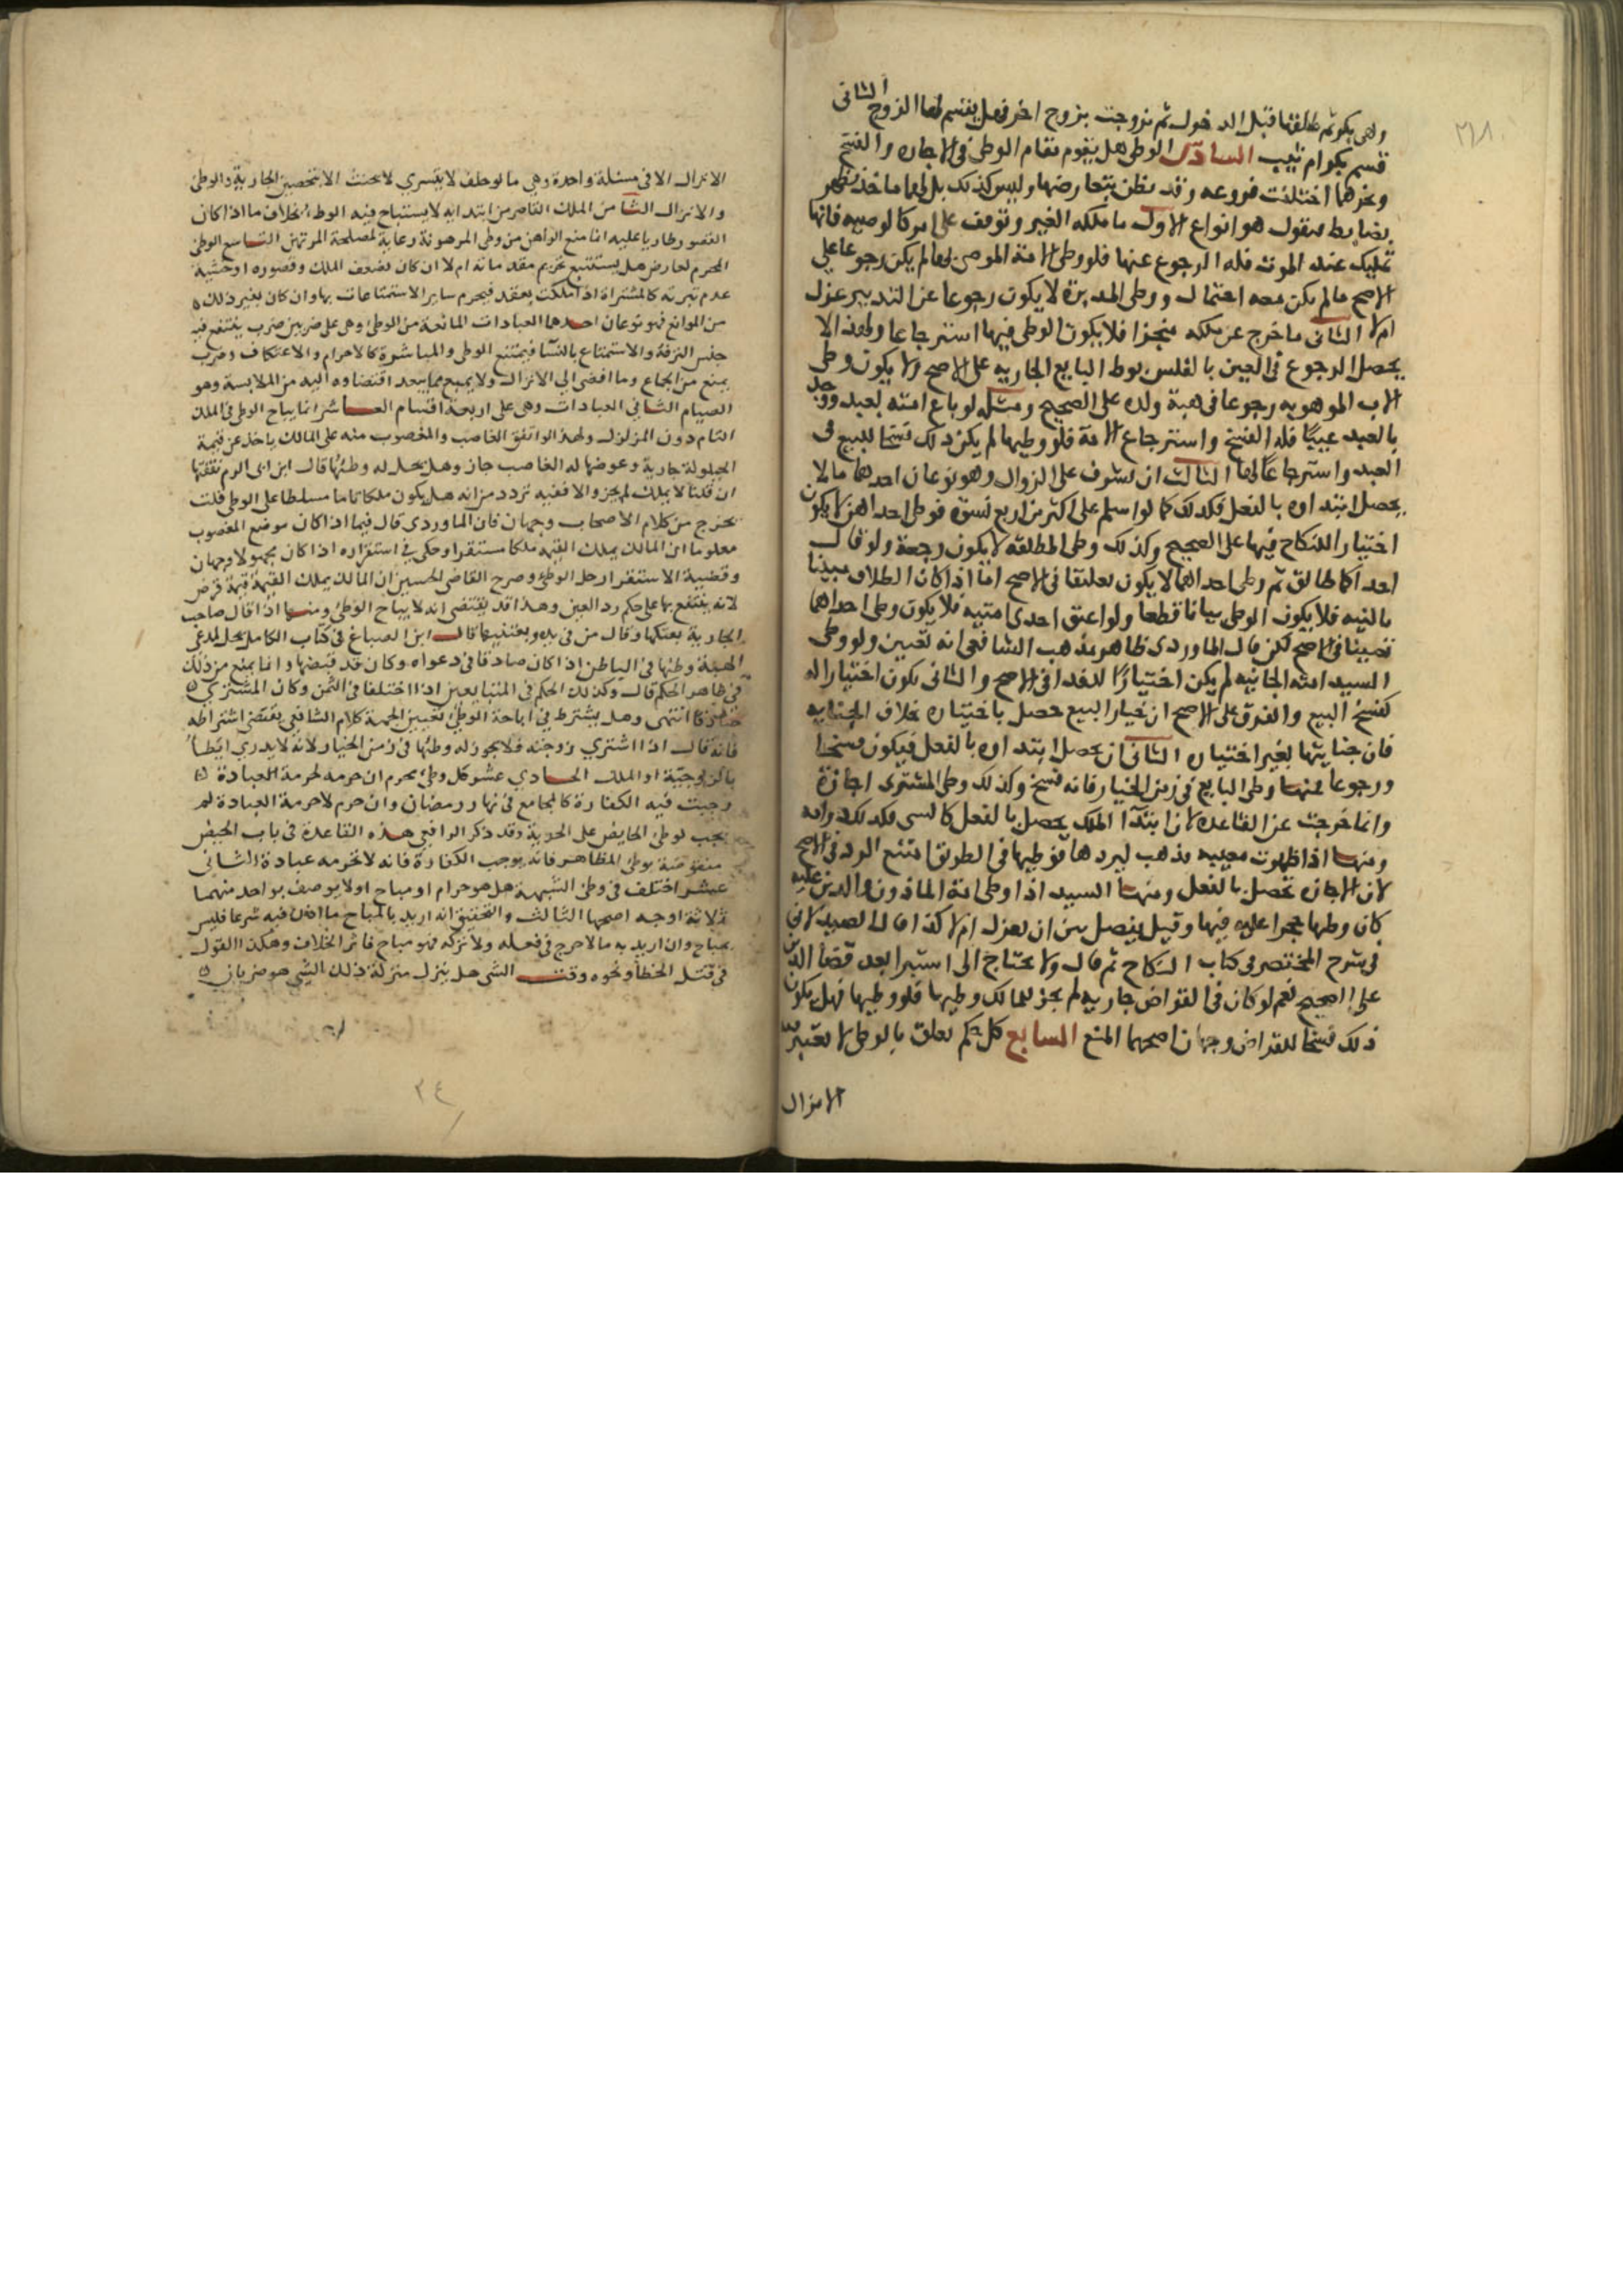 وهى بكر ثم طلقها قبل الدخول ثم تزوجت بزوج اخر فهل يقسم لها الزوج الثانى
قسم بكر ام ثيب السادس الوطى هل يقوم مقام الوطى فى الاجازه والفسخ
ونحوهما اختلفت فروعه وقد يظن تعارضها وليس كذلك بل لها ماخذ يظهر
بضابط فنقول هو انواع الاول ما ملكه الغير وتوقف على امر كالوصيه فانها
تمليك عند الموت فله الرجوع عنها فلو وطى الامة الموصى بها لم يكن رجوعا على
الاصح مالم يكن معه احبال ووطى المدبرة لا يكون رجوعا عن التدبير عزل
ام لا الثانى ما خرج عن ملكه منجزا فلا يكون الوطى فيها استرجاعا ولهذا لا
يحصل الرجوع فى العين بالفلس بوطء البايع الجاريه على الاصح ولا يكون وطى
الاب الموهوبه رجوعا فى هبة ولده على الصحيح ومثله لو باع امته بعبد ووجد
بالعبد عيبًا فله الفسخ واسترجاع الامة فلو وطيها لم يكن ذلك فسخا للبيع فى
العبد واسترجاعًا لها الثالث ان يشرف على الزوال وهو نوعان احدهما مالا
يحصل ابتداوه بالفعل فكذلك كما لو اسلم على اكثر من اربع نسوة فوطى احداهن لا يكون
اختيارا للنكاح فيها على الصحيح وكذلك وطى المطلقه لا يكون رجعة ولو قال
احداكما طالق ثم وطى احداهما لا يكون تعليقا فى الاصح اما اذا كان الطلاق مبينا
بالنيه فلا يكون الوطى بيانا قطعا ولو اعتق احدى امتيه فلا يكون وطى احداهما
تعيينا فى الاصح لكن قال الماوردى ظاهر مذهب الشافعى انه تعيين ولو وطى
السيد امته الجانيه لم يكن اختيارًا للفدا فى الاصح والثانى يكون اختيارا له
كفسخ البيع والفرق على الاصح ان خيار البيع حصل باختياره خلاف الجنايه
فان جنايتها بغير اختياره الثانى ان يحصل ابتداوه بالفعل فيكون فسخا
ورجوعا فمنها وطى البايع فى زمن الخيار فانه فسخ وكذلك وطى المشترى اجازة
وانما خرجت عن القاعده لان ابتدا الملك يحصل بالفعل كالسبى فكذلك
ومنها اذا ظهرت معيبه فذهب ليردها فوطيها فى الطريق امتنع الرد فى الاصح
لان الاجازه تحصل بالفعل ومنها السيد اذا وطى امة الماذون والدين عليه
كان وطيها حجرا عليه فيها وقيل يفصل بين ان يعزل ام لا كذا قال الصيدلانى
فى شرح المختصر فى كتاب النكاح ثم قال ولا يحتاج الى استبرا بعد قضا الدين
على الصحيح نعم لو كان فى القراض جاريه لم يجز للمالك وطيها فلو وطيها فهل يكون
ذلك فسخا للقراض وجهان اصحهما المنع السابع كل حكم تعلق بالوطى لا يعتبر فيه
الانزال
الانزال الا فى مسئلة واحدة وهى ما لو حلف لا يتسري لا يحنث الا بتحصين الجارية والوطئ
والانزال الثامن الملك القاصر من ابتدايه لا يستباح فيه الوطء بخلاف ما اذا كان
القصور طاريا عليه انما منع الراهن من وطى المرهونة رعاية لمصلحة المرتهن التاسع الوطى
المحرم لعارض هل يستتبع تحريم مقدماته ام لا ان كان لضعف الملك وقصوره او خشية
عدم تبرته كالمشتراة اذا ملكت بعقد فيحرم ساير الاستمتاعات بها وان كان بغير ذلك
من الموانع فهو نوعان احدها العبادات المانعة من الوطئ وهى على ضربين ضرب يمتنع فيه
جنس الترفه والاستمتاع بالنسا فيمتنع الوطى والمباشرة كالاحرام والاعتكاف وضرب
يمنع من الجماع وما افضى الى الانزال ولا يمنع مما يبعد افضاوه اليه من الملابسة وهو
الصيام الثانى العبادات وهى على اربعة اقسام العاشر انما يباح الوطى فى الملك
التام دون المزلزل ولهذا لو اتفق الغاصب والمغصوب منه على المالك ياخذ عن قيمة
الحيلولة جارية وعوضها له الغاصب جاز وهل يحل له وطئها قال ابن ابى الدم تفقها
ان قلنا لا يملك لم يجز والا ففيه تردد من انه هل يكون ملكا تاما مسلطا على الوطى قلت
يخرج من كلام الاصحاب وجهان فان الماوردى قال فيما اذا كان موضع المغصوب
معلوما ان المالك يملك القيمه ملكا مستقرا وحكى فى استقراره اذا كان مجهولا وجهان
وقضية الاستقرار حل الوطئ وصرح القاضى الحسين ان المالك يملك القيمة قيمة قرض
لانه ينتفع بها على حكم رد العين وهذا قد يقتضى انه لا يباح الوطئ ومنها اذا قال صاحب
الجارية بعتكها وقال من فى يده وهبتنيها قال ابن الصباغ فى كتاب الكامل يحل لمدعى
الهبة وطئها فى الباطن اذا كان صادقا فى دعواه وكان قد قبضها وانما يمنع من ذلك
فى ظاهر الحكم قال وكذلك الحكم فى المتبايعين اذا اختلفا فى الثمن وكان المشترى
صادقا انتهى وهل يشترط فى اباحة الوطئ تعيين الجهة كلام الشافعى يقتضى اشتراطه
فانه قال اذا اشترى زوجته فلا يجوز له وطئها فى زمن الخيار لانه لا يدرى ايطأ
بالزوجيّة او الملك الحادي عشر كل وطئ يحرم ان حرمه لحرمة العبادة
وجبت فيه الكفارة كالجامع فى نهار رمضان وان حرم لا حرمة العبادة لم
يجب لوطئ الحايض على الجديد وقد ذكر الرافعى هذه القاعدة فى باب الحيض
منقوضة بوطئ المظاهر فانه يوجب الكفارة فانه لا تحرمه عبادة الثانى
عشر اختلف فى وطئ الشبهة هل هو حرام او مباح او لا يوصف بواحد منهما
ثلاثة اوجه اصحها الثالث والتحقيق انه اريد بالمباح ما اذن فيه شرعا فليس
بمباح وان اريد به مالا حرج فى فعله ولا تركه فهو مباح فاثر الخلاف وهكذا القول
فى قتل الخطأ ونحوه وقت الشى هل ينزل منزلة ذلك الشى هو ضربان
٢٤